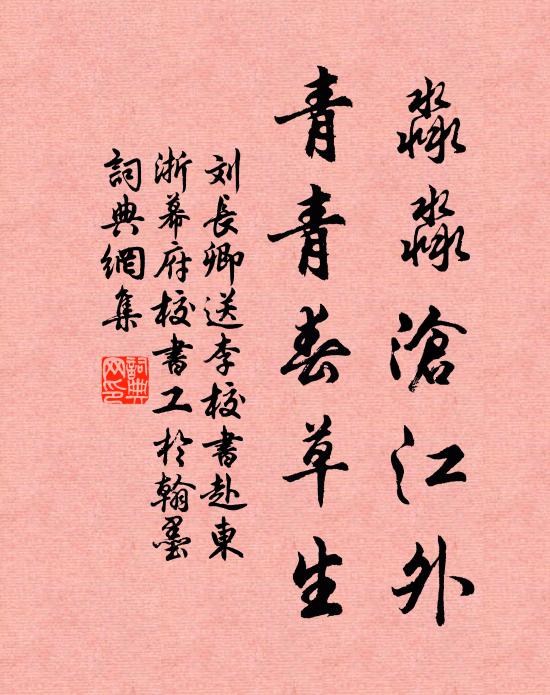 淼淼滄江外
青青春草生
刘長卿送李校書赴東
浙幕府校書工於翰墨
詞典網集
詞典
网印